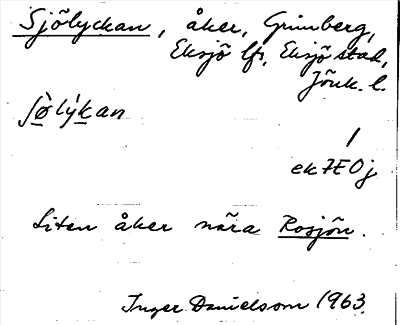 Sjölyckan, åker, Grimberg,
Eksjö lfs, Eksjö stad,
Jönk. l.
ʃø̀lýkan
/
ek 7E0j
Liten åker nära Rosjön.
Inger Danielsson 1963.